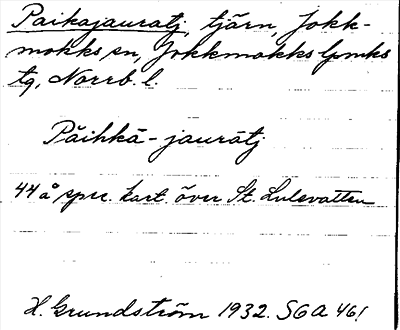 Paikajauratj, tjärn, Jokk-
mokks sn, Jokkmokks lpmks
tg, Norrb. l.
Påihkā-jaurātj
44 å spec. kart. över St. Lulevatten
H. Grundström 1932. SGA 46!